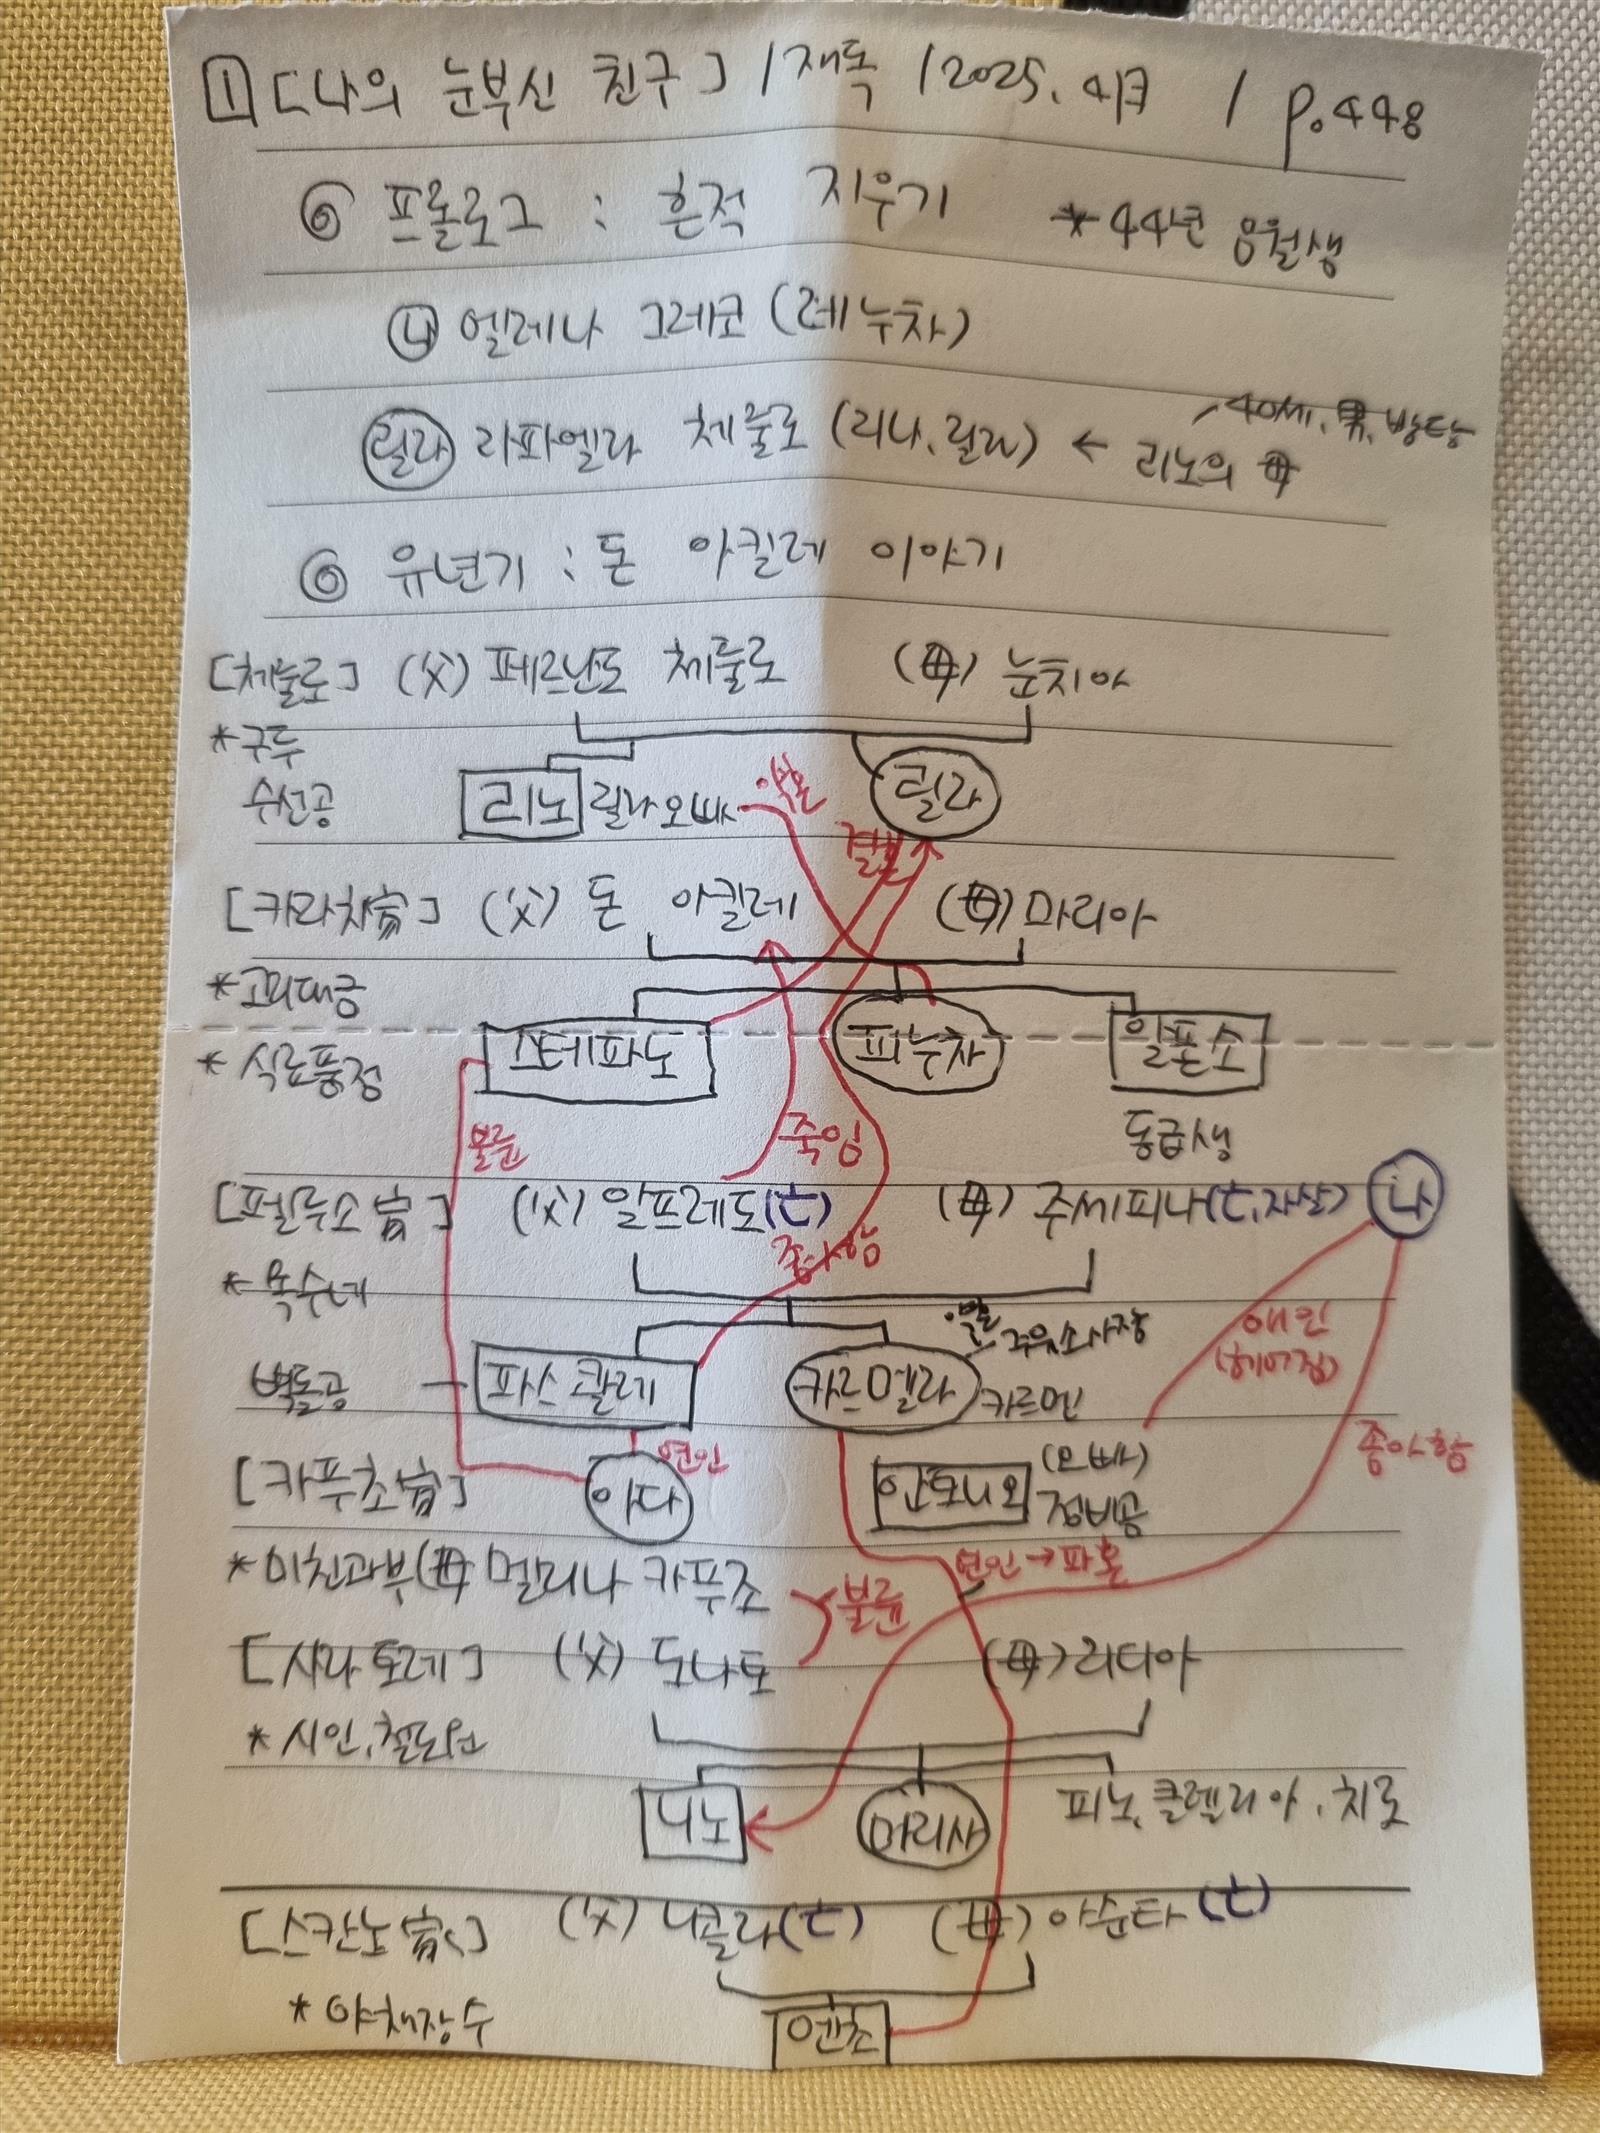 1 「나의 눈부신 친구」 / 재독 / 2025. 4月 / p.448
◎ 프롤로그 : 흔적 지우기 *44년 8월생
나 엘레나 그레코 (레누차)
릴라 라파엘라 체룰로 (리나, 릴라) ← 리노의 母
40세, 男, 방탕
◎ 유년기 : 돈 아킬레 이야기
[체룰로] (父) 페르난도 체룰로 (母) 눈치아
*구두
수선공
리노 릴라오빠 약혼 릴라
결혼
[카라치家] (父) 돈 아킬레 (母) 마리아
*고리대금
*식료품점 스테파노 피누차 알폰소
동급생
불륜 죽임
[펠루소家] (父) 알프레도(亡) (母) 주세피나(亡, 자살) 나
좋아함
*목수네
약혼 주유소사장
애인
(헤어짐)
벽돌공 파스콸레 카르멜라 카르멘
좋아함
연인
[카푸초家] 아다 안토니오 (오빠)
정비공
*미친과부(母 멜리나 카푸초
불륜 연인→파혼
[사라토레] (父) 도나토 (母) 리디아
*시인, 철도원
니노 마리사 피노, 클렐리아, 치로
[스칸노家] (父) 니콜라(亡) (母) 아순타(亡)
*야채장수 엔초